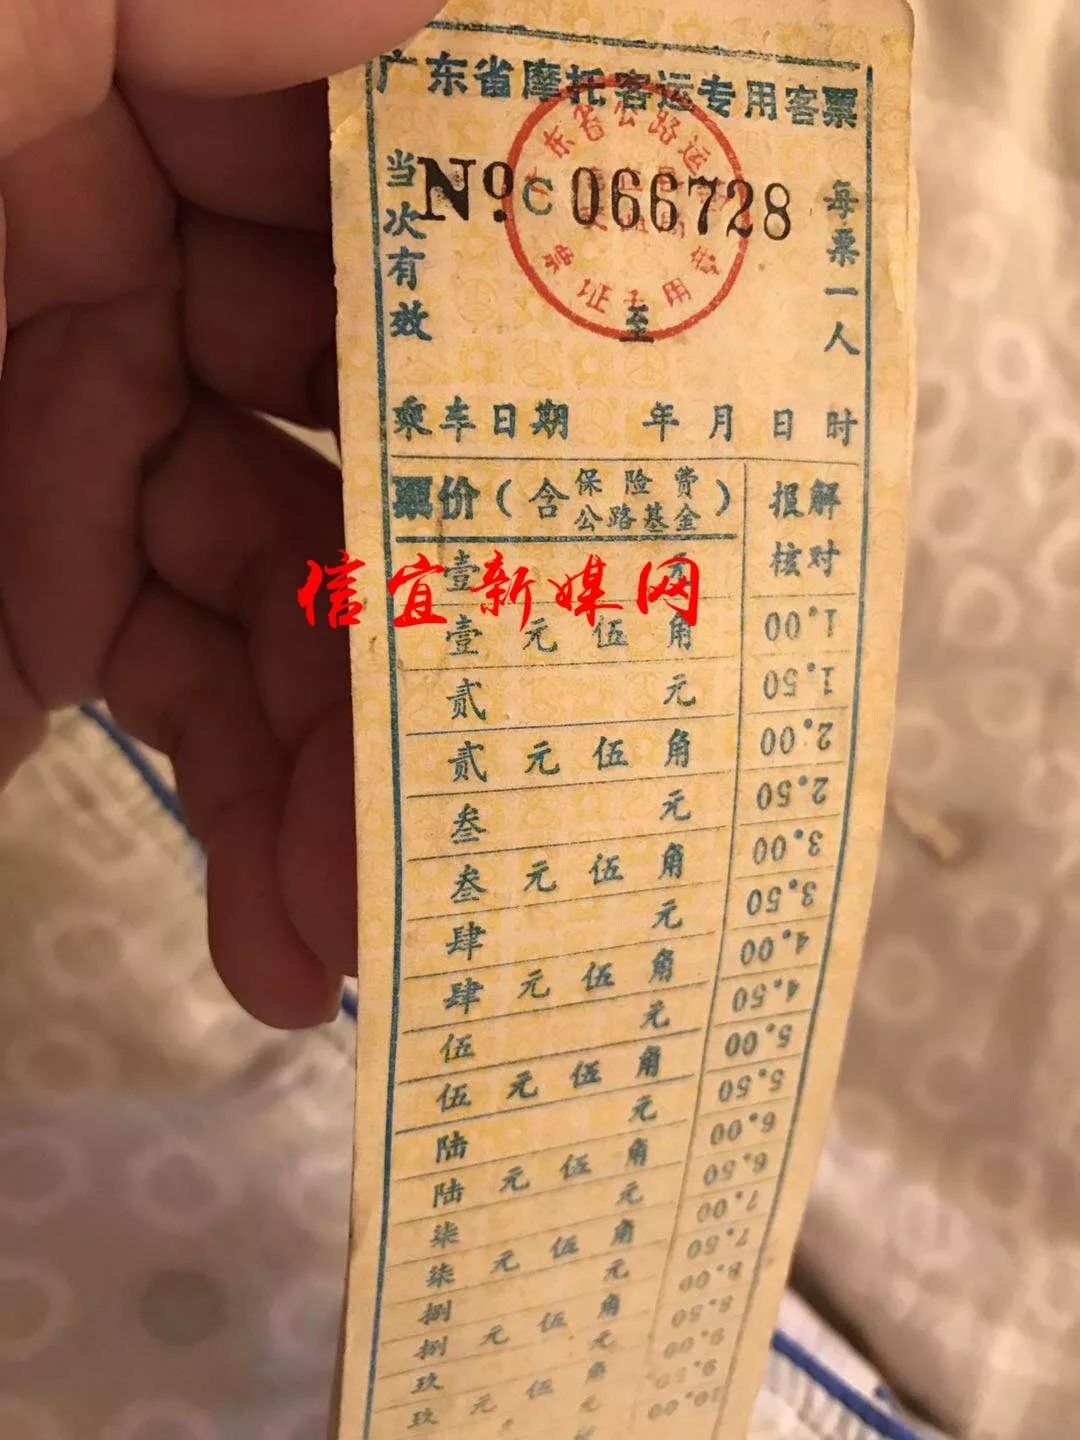 广东省摩托客运专用客票
当次有效
No. C 066728
每票一人
东省公路运
证专用
至
乘车日期 年 月 日 时
票价（含保险费公路基金） 报解核对
信宜新媒网
壹 元
壹元伍角 1.00
贰 元 1.50
贰元伍角 2.00
叁 元 2.50
叁元伍角 3.00
肆 元 3.50
肆元伍角 4.00
伍 元 4.50
伍元伍角 5.00
陆 元 5.50
陆元伍角 6.00
柒 元 6.50
柒元伍角 7.00
捌 元 7.50
捌元伍角 8.00
玖 元 8.50
玖元伍角 9.00
9.50
10.00